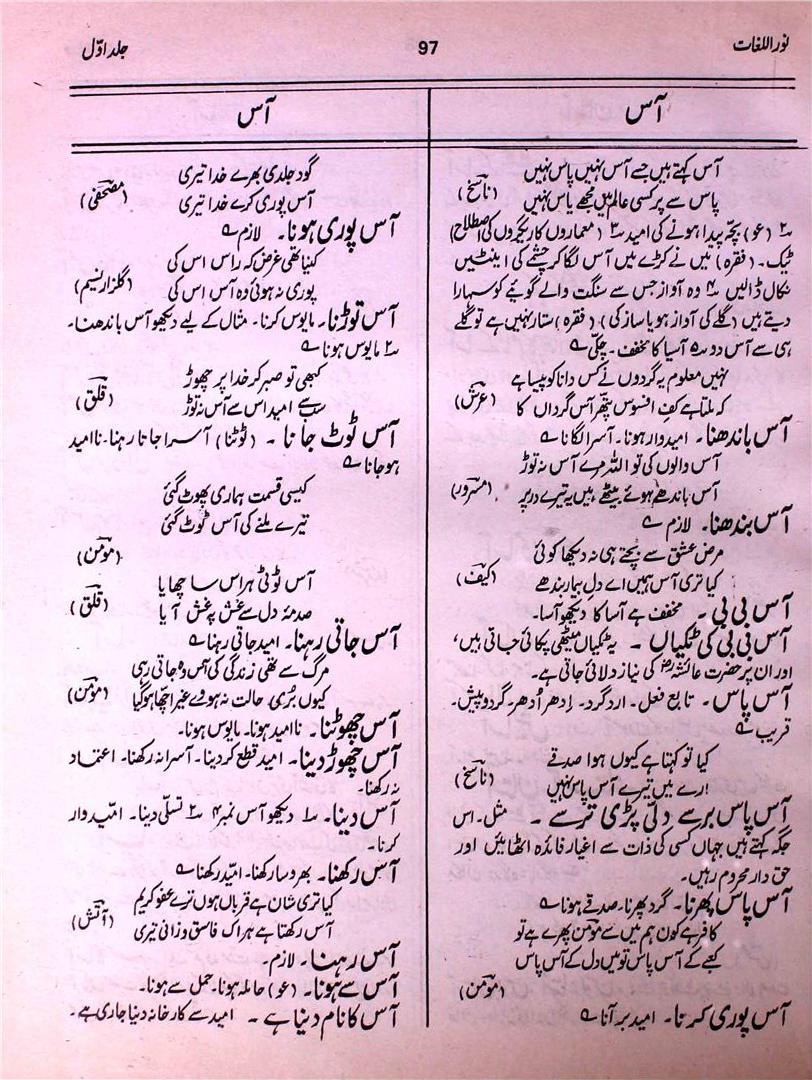 نور اللغات
97
جلد اوّل
آس
آس
آس کہتے ہیں جسے آس نہیں پاس نہیں
پاس سے پر کسی عالم میں مجھے یاس نہیں (ناسخ)
۲ (عو) بچہ پیدا ہونے کی امید ۳ (معماروں کاریگروں کی اصطلاح)
ٹیک۔ (فقرہ) میں نے کڑے میں آس لگا کر چشمے کی اینٹیں
نکال ڈالیں ۴ وہ آواز جس سے سنگت والے گویئے کو سہارا
دیتے ہیں (گلے کی آواز ہو یا ساز کی) (فقرہ) ستار نہیں ہے تو گلے
ہی سے آس دو ۵ آسیا کا مخفف۔ چکّی ؎
نہیں معلوم یہ گردوں نے کس دانا کو پیسا ہے
کہ ملتا ہے کفِ افسوس پتھر آس گرداں کا (عرش)
آس باندھنا۔ امیدوار ہونا۔ آسرا لگانا ؎
آس والوں کی تو اللہ مرے آس نہ توڑ
آس باندھے ہوئے بیٹھے ہیں یہ تیرے در پر (مسرور)
آس بندھنا۔ لازم ؎
مرض عشق سے بچتے ہی نہ دیکھا کوئی
کیا تری آس ہمیں اے دلِ بیمار بندھے (کیف)
آس بی بی۔ مخفف ہے آسا کا دیکھو آسا۔
آس بی بی کی ٹکیاں۔ یہ ٹکیاں میٹھی پکائی جاتی ہیں،
اور ان پر حضرت عائشہؓ کی نیاز دلائی جاتی ہے۔
آس پاس۔ تابع فعل۔ ارد گرد۔ اِدھر اُدھر۔ گرد و پیش۔
قریب ؎
کیا تو کہتا ہے کیوں ہوا صدقے
ارے میں تیرے آس پاس نہیں (ناسخ)
آس پاس برسے دلّی پڑی ترسے۔ مثل۔ اس
جگہ کہتے ہیں جہاں کسی کی ذات سے اغیار فائدہ اٹھائیں اور
حق دار محروم رہیں۔
آس پاس پھرنا۔ گرد پھرنا۔ صدقے ہونا ؎
کافر ہے کون ہم میں سے مومن پھرے ہے تو
کعبے کے آس پاس تو میں دل کے آس پاس
(مومن)
آس پوری کرنا۔ امید بر آنا ؎
گود جلدی بھرے خدا تیری
آس پوری کرے خدا تیری (مصحفی)
آس پوری ہونا۔ لازم ؎
کہنا تھی غرض کہ راس اس کی
پوری نہ ہوئی وہ آس اس کی (گلزار نسیم)
آس توڑنا۔ مایوس کرنا۔ مثال کے لیے دیکھو آس باندھنا۔
۲ مایوس ہونا ؎
کبھی تو صبر کر خدا پر چھوڑ
سب سے امید اس سے آس نہ توڑ (قلق)
آس ٹوٹ جانا۔ (ٹوٹنا) آسرا جاتا رہنا۔ ناامید
ہو جانا ؎
کیسی قسمت ہماری پھوٹ گئی
تیرے ملنے کی آس ٹوٹ گئی
(مومن)
آس ٹوٹی ہراس سا چھایا
صدمۂ دل سے غش پہ غش آیا (قلق)
آس جاتی رہنا۔ امید جاتی رہنا ؎
مرگ سے تھی زندگی کی آس وہ جاتی رہی
کیوں بُری حالت نہ ہووے غیر اچھا ہو گیا (مومن)
آس چھوٹنا۔ ناامید ہونا۔ مایوس ہونا۔
آس چھوڑ دینا۔ امید قطع کر دینا۔ آسرا نہ رکھنا۔ اعتماد
نہ رکھنا۔
آس دینا۔ ۱ دیکھو آس نمبر ۴ ۲ تسلی دینا۔ امیدوار
کرنا۔
آس رکھنا۔ بھروسا رکھنا۔ امید رکھنا ؎
کیا تری شان ہے قرباں ہوں ترے عفو کریم
آس رکھتا ہے ہر اک فاسق و زانی تیری (آتش)
آس رہنا۔ لازم۔
آس سے ہونا۔ (عو) حاملہ ہونا۔ حمل سے ہونا۔
آس کا نام دنیا ہے۔ امید سے کارخانہ دنیا جاری ہے۔